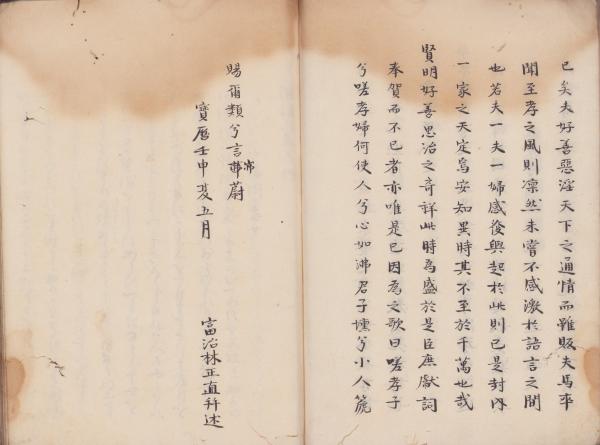 已矣夫好善惡淫天下之通情而雖販夫馬卒
聞至孝之風則凜然未嘗不感激於語言之間
也若夫一夫一婦感後興起於此則已是封内
一家之天定焉安知異時其不至於千萬也哉
賢明好善思治之奇祥此時為盛於是臣庶獻詞
奉賀而不已者亦唯是已因為之歌曰嗟孝子
兮嗟孝婦何使人兮心如沸君子壎兮小人篪
賜爾類兮言茀蔚
沛
寶曆壬申夏五月
冨治林正直拜述